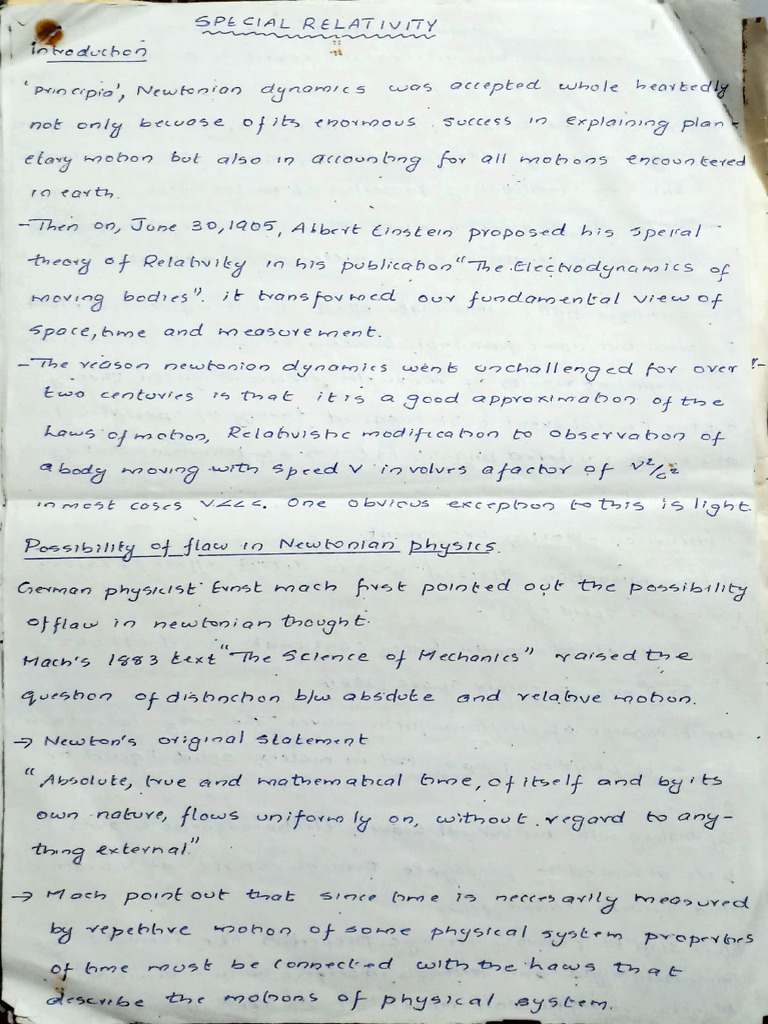 SPECIAL RELATIVITY
introduction
'principia', Newtonian dynamics was accepted whole heartedly
not only becuase of its enormous success in explaining plan-
etary motion but also in accounting for all motions encountered
in earth.
- Then on, June 30, 1905, Albert Einstein proposed his special
theory of Relativity in his publication "The Electrodynamics of
moving bodies". it transformed our fundamental view of
space, time and measurement.
- The reason newtonion dynamics went unchallenged for over
two centuries is that it is a good approximation of the
Laws of motion, Relativistic modification to observation of
a body moving with speed v involves a factor of v²/c²
in most cases v<<c. One obvious exception to this is light.
Possibility of flaw in Newtonian physics.
German physicist Ernst mach first pointed out the possibility
of flaw in newtonian thought.
Mach's 1883 text "The Science of Mechanics" raised the
question of distinction b/w absolute and relative motion.
→ Newton's original statement
"Absolute, true and mathematical time, of itself and by its
own nature, flows uniformly on, without regard to any-
thing external"
→ Mach point out that since time is neccesarily measured
by repetitive motion of some physical system properties
of time must be connected with the laws that
describe the motions of physical system.